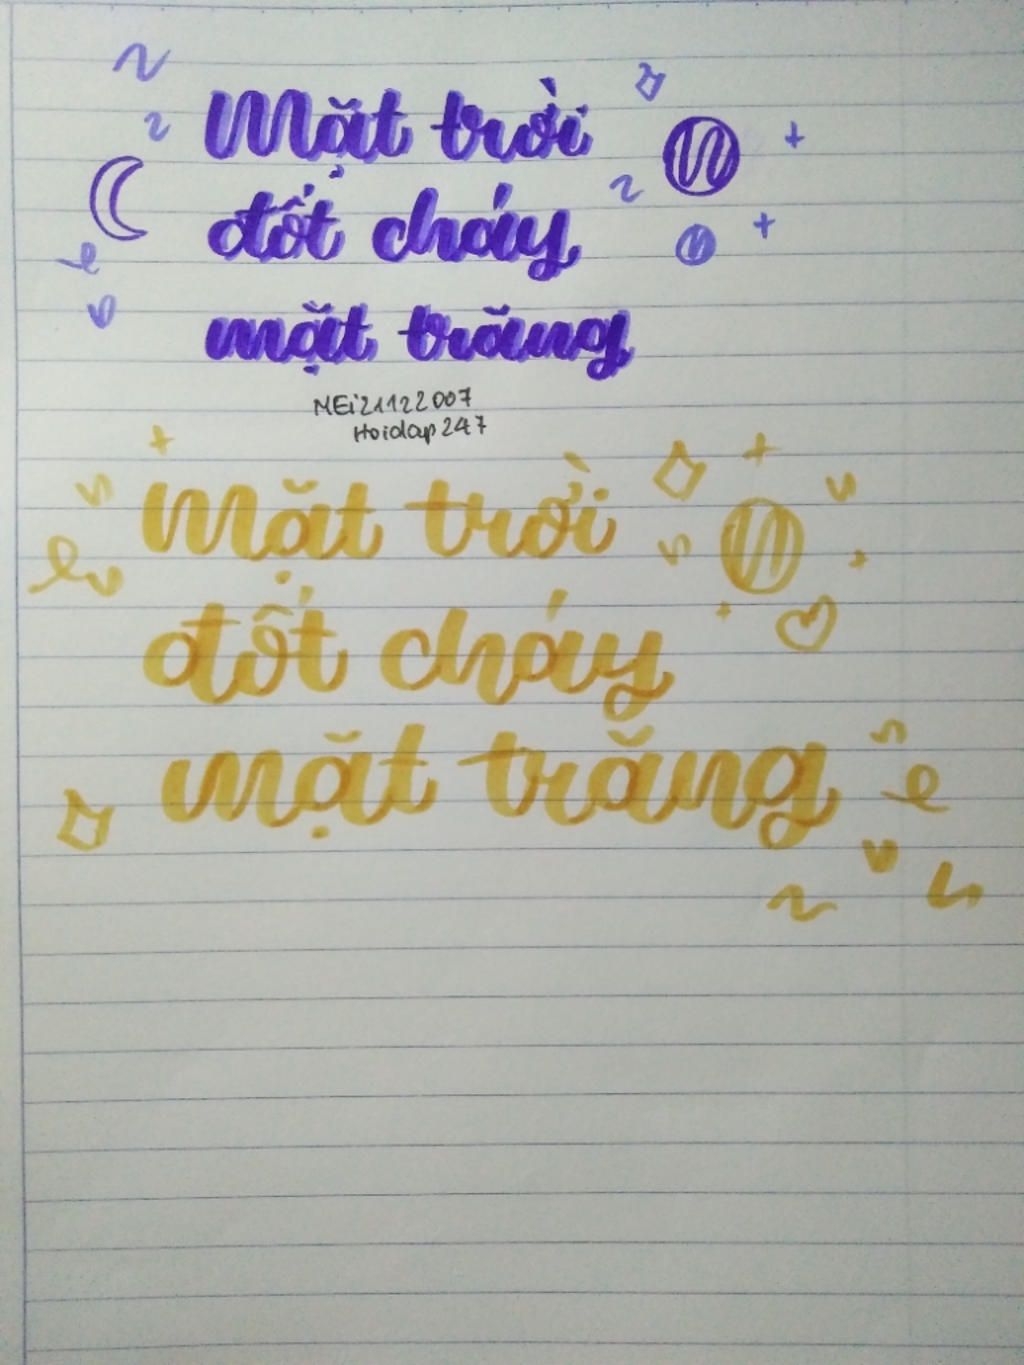 Mặt trời
đốt cháy
mặt trăng
MEi21122007
Hoidap247
Mặt trời
đốt cháy
mặt trăng